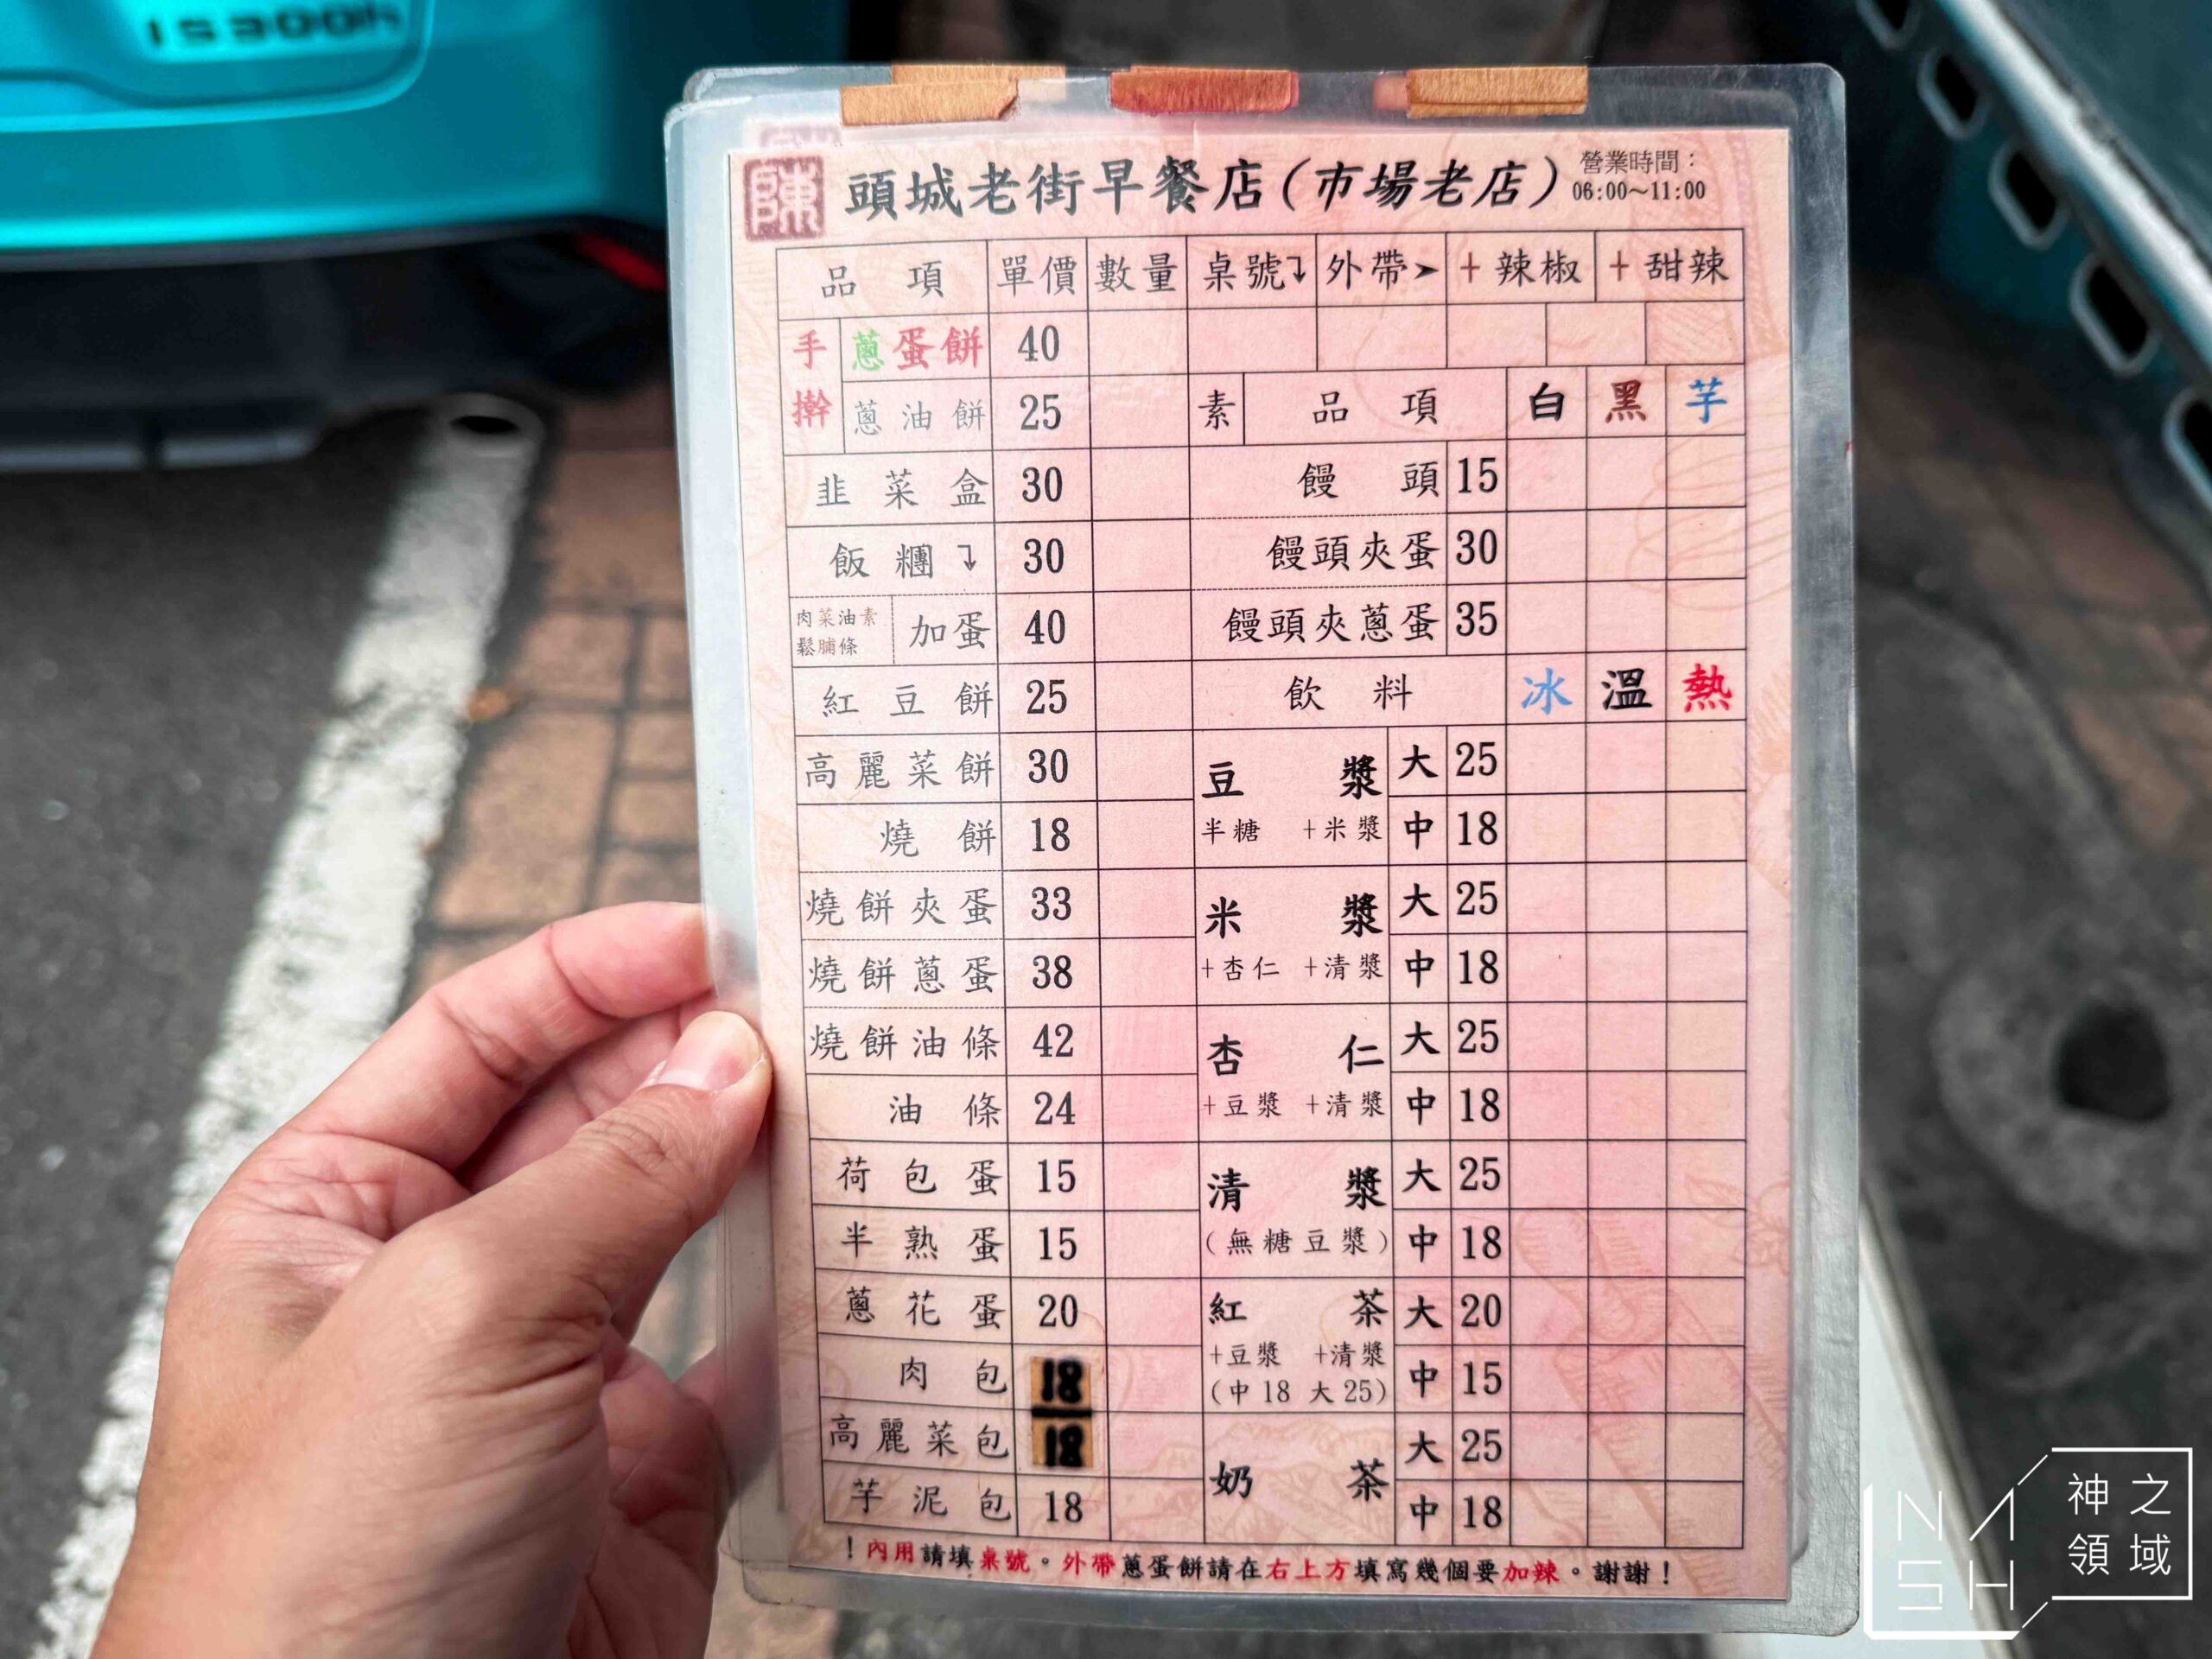 IS300h
陳 頭城老街早餐店(市場老店) 營業時間：
06:00~11:00
品項 單價 數量 桌號↴ 外帶➤ +辣椒 +甜辣
手擀 蔥蛋餅 40
蔥油餅 25
韭菜盒 30
飯糰↴ 30
肉鬆 菜脯 油條 素 加蛋 40
紅豆餅 25
高麗菜餅 30
燒餅 18
燒餅夾蛋 33
燒餅蔥蛋 38
燒餅油條 42
油條 24
荷包蛋 15
半熟蛋 15
蔥花蛋 20
肉包 18
高麗菜包 18
芋泥包 18
素 品項 白 黑 芋
饅頭 15
饅頭夾蛋 30
饅頭夾蔥蛋 35
飲料 冰 溫 熱
豆漿 大 25
半糖 +米漿 中 18
米漿 大 25
+杏仁 +清漿 中 18
杏仁 大 25
+豆漿 +清漿 中 18
清漿 大 25
(無糖豆漿) 中 18
紅茶 大 20
+豆漿 +清漿
(中18 大25) 中 15
奶茶 大 25
中 18
！內用請填桌號。外帶蔥蛋餅請在右上方填寫幾個要加辣。謝謝！
NASH
神之領域